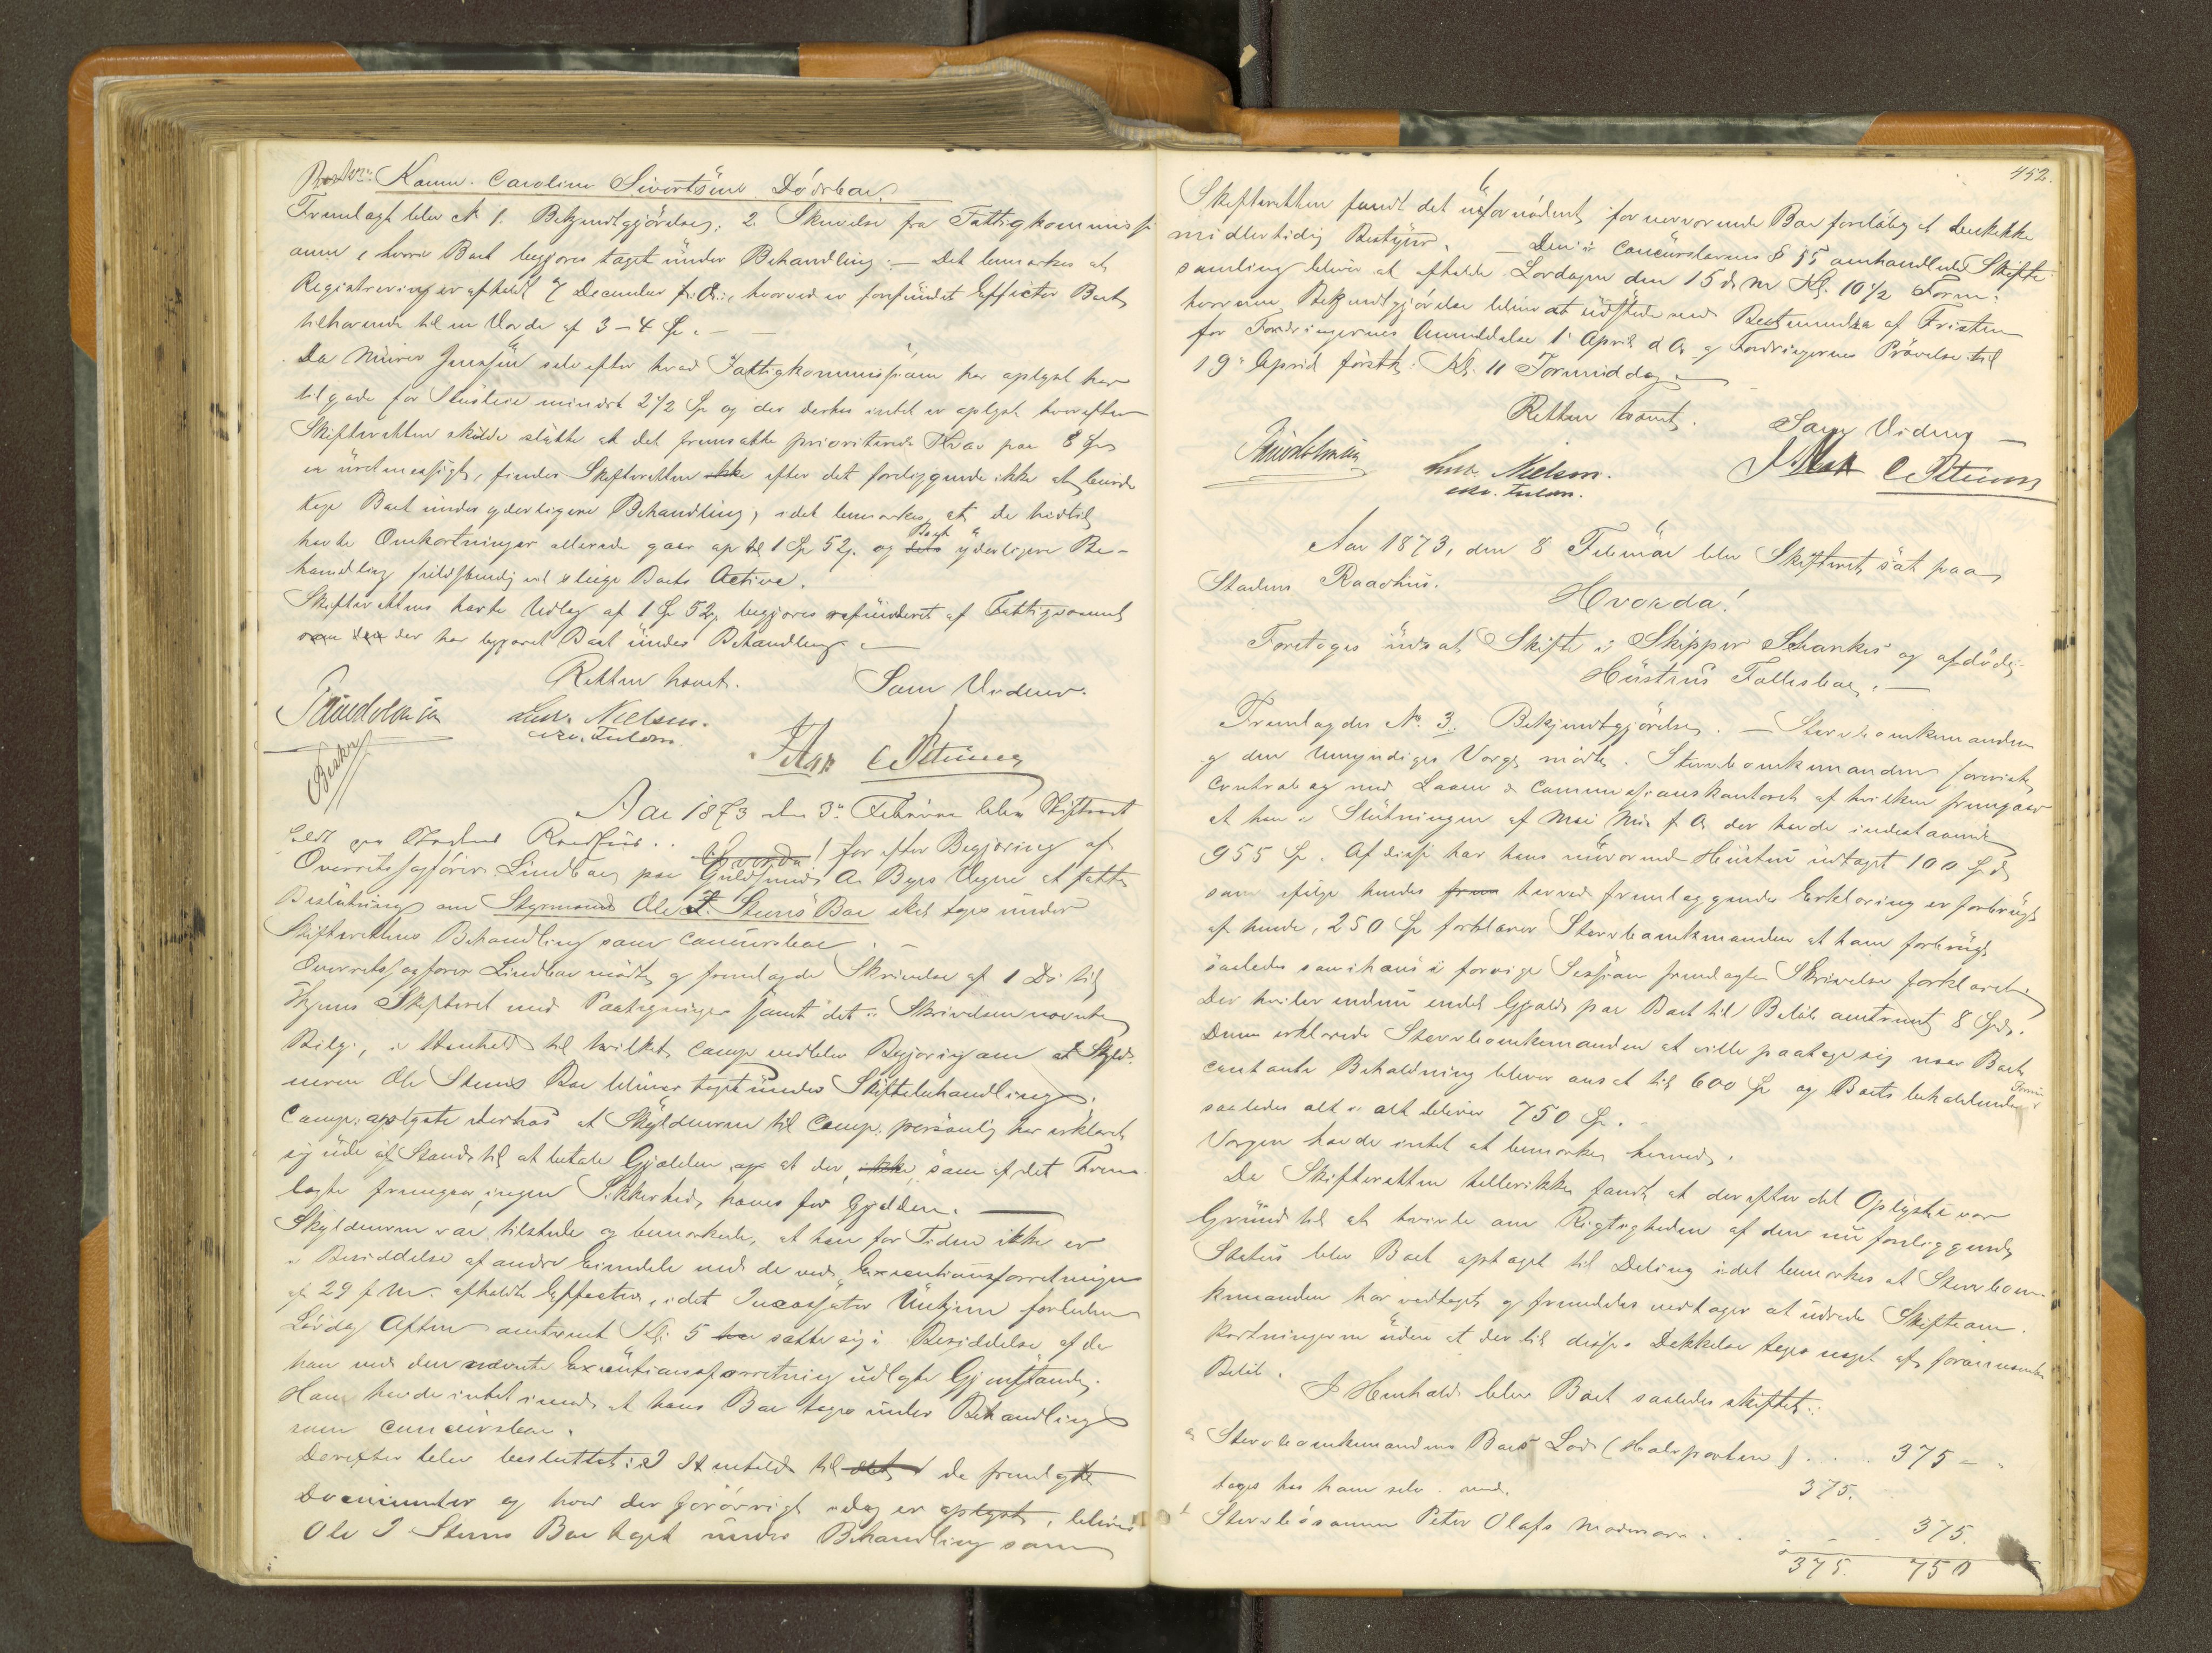 Kone Caroline Sivertsens Dödsbo.
Fremlagt blev No 1. Bekjendtgjörelse; 2 Skrivelse fra Fattigkommissi
onen, hvori Boet begjæres taget under Behandling. — Det bemærkes at
Registrering er afholdt 7 December f. A., hvorved er forefundet Effecter Boet
tilhørende til en Værdi af 3-4 Sp. —
Da Murer Jensen selv efter hvad Fattigkommissionen har oplyst har
tilgode for Husleie mindst 2 1/2 Sp og der derhos intet er oplyst hvorefter
Skifteretten skulde slutte at det fremsatte prioriterede Krav paa 8 Sp
er uretmessigt, finder Skifteretten ikke efter det foreliggende ikke at burde
tage Boet under yderligere Behandling, idet bemærkes, at de hidtil
havte Omkostninger allerede gaar op til 1 Sp 52 s. og dets Boets yderligere Be-
handling fuldstændig vil sluge Boets Active.
Skifterettens havte Udlæg af 1 Sp 52 s. begjæres refunderet af Fattigvæsenet
som den der har begjæret Boet under Behandling. —
Retten hævet.
Som Vidner.
Lud. Nielsen.
exv. Fuldm.
J Aas C Petersen
Aar 1873 den 3die Februar blev Skifteret
holdt paa Stadens Raadhus. Hvorda! for efter Begjæring af
Overretssagfører Lindboe paa Guldsmed A. Byes Vegne at fatte
Beslutning om Styrmand Ole I. Steens Bo skal tages under
Skifterettens Behandling som Concursboe. —
Overretssagfører Lindboe mødte og fremlagde Skrivelse af 1 Ds til
Byens Skifteret med Paategninger samt det i Skrivelsen nævnte
Bilag, i Henhold til hvilket Comp. nedlagde Begjæring om at Skyld-
neren Ole Steens Boe bliver taget under Skiftebehandling.
Comp. oplyste derhos at Skyldneren til Comp. personlig har erklæret
sig ude af Stand til at betale Gjælden og at der, ikke, som af det Frem-
lagte fremgaar, ingen Sikkerhed haves for Gjelden. —
Skyldneren var tilstede og bemærkede, at han for Tiden ikke er
i Besiddelse af andre Eiendele end de ved Executionsforretningen
af 29 f. M. afholdte Effecter, idet Incassator forleden
Lördag Aften omtrent Kl. 5 har satte sig i Besiddelse af de
han ved den nævnte Executionsforretning udlagte Gjenstande.
Han havde intet imod at hans Boe toges under Behandling
som Concursboe.
Derefter blev besluttet: I Henhold til det de fremlagte
Documenter og hvad der forövrigt idag er oplyst, bliver
Ole I Steens Boe taget under Behandling som
452.
Skifteretten fandt det ufornødent for nærværende Boe foreløbig at beskikke
midlertidig Bestyrer. — Den i Concurslovens § 55 omhandlede Skifte-
samling bliver at afholde Lørdagen den 15 d. M. Kl. 10 1/2 Form.
hvorom Bekjendtgjörelse bliver at udstede med Bestemmelse af Fristen
for Fordringernes Anmeldelse 1 April d. A. og Fordringernes Prövelse til
19 April förstk. Kl. 11 Formiddag —
Retten hævet.
Som Vidner
Lud. Nielsen.
exv. Fuldm.
J Aas C Petersen
Aar 1873, den 8 Februar blev Skifteret sat paa
Stadens Raadhus.
Hvorda!
Foretoges idet at Skifte i Skipper Schankes og afdöde
Hustrus Fællesboe. —
Fremlagdes No. 3. Bekjendtgjörelse. — Stervboenkemanden
og den Umyndiges Værge mødte. Stervboenkemanden foreviste
Contrabog med Laane & Commissionskontoret af hvilken fremgaar
at han i Slutningen af Mai M. f. A. der havde indestaaende
955 Sp. Af disse har hans nuværende Hustru udtaget 100 Spd
som ifølge hendes from herved fremlæggende Erklæring er forbrugt
af hende, 250 Sp forklarer Stervboenkemanden at han forbrugt
saaledes som i hans i forrige Session fremlagte Skrivelse forklaret.
Der hviler endnu endel Gjæld paa Boet til Beløb omtrent 8 Spd.
Denne erklærede Stervboenkemanden at ville paatage sig naar Boets
contante Beholdning bliver ansat til 600 Sp og Boets beholdende Formue
saaledes alt i alt bliver 750 Sp. —
Værgen havde intet at bemærke herved.
Da Skifteretten hellerikke fandt at der efter det Oplyste var
Grund til at tvivle om Rigtigheden af den nu foreliggende
Status blev Boet optaget til Deling idet bemærkes at Stervboen-
kemanden har vedtaget og fremdeles vedtager at udrede Skifteom-
kostningerne uden at der til disses Dekkelse tages noget af forannævnte
Beløb.
I Henhold blev Boet saaledes skiftet:
a Stervboenkemandens Boes Lod (Halvparten) . . . 375 - "
tages hos ham selv med. 375.
b Stervbosønnen Peter Olafs Mødrearv . . . 375.
375. 750